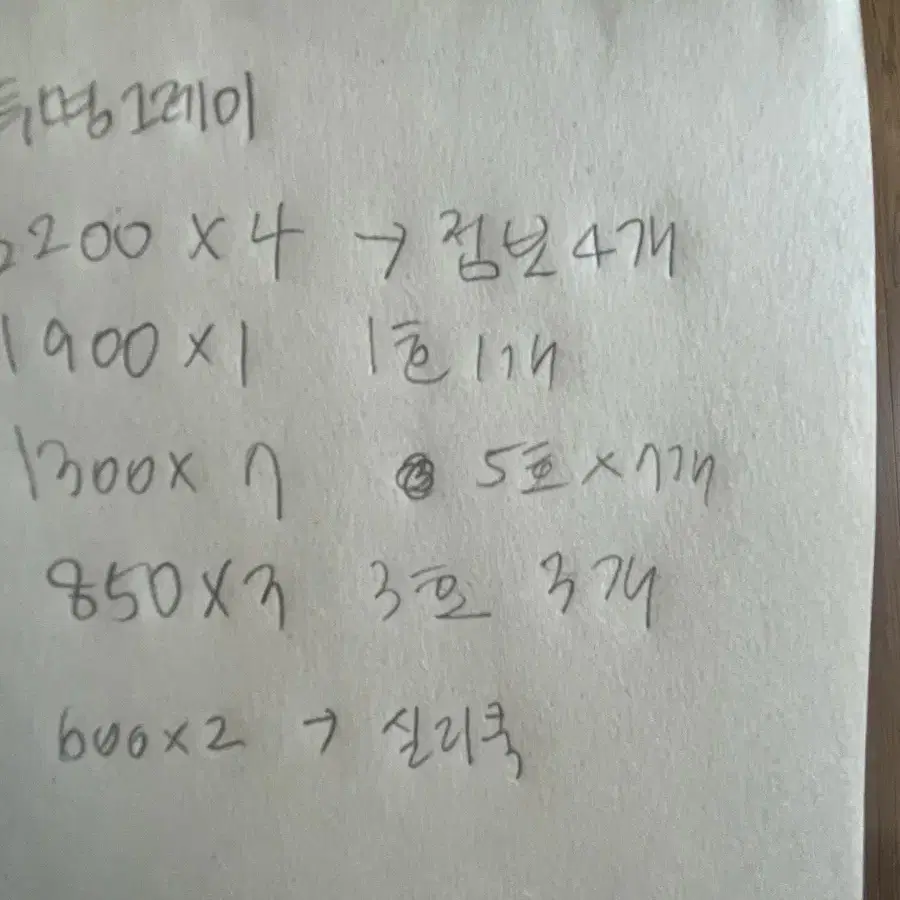 투명그레이
2200 × 4 → 점보 4개
1900 × 1 1호 1개
1300 × 7 5호 × 7개
850 × 3 3호 3개
600 × 2 → 실리쿡